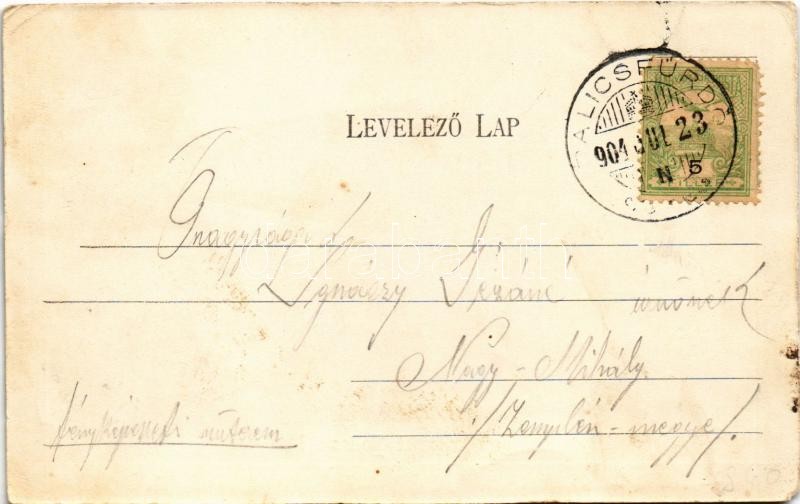 LEVELEZŐ LAP
PALICSFÜRDŐ
904 JUL 23
N 5
Nagysága
Ignáczy Gézáné úrnőnek
Nagy-Mihály.
/Zemplén-megye/.
fényképészeti műterem